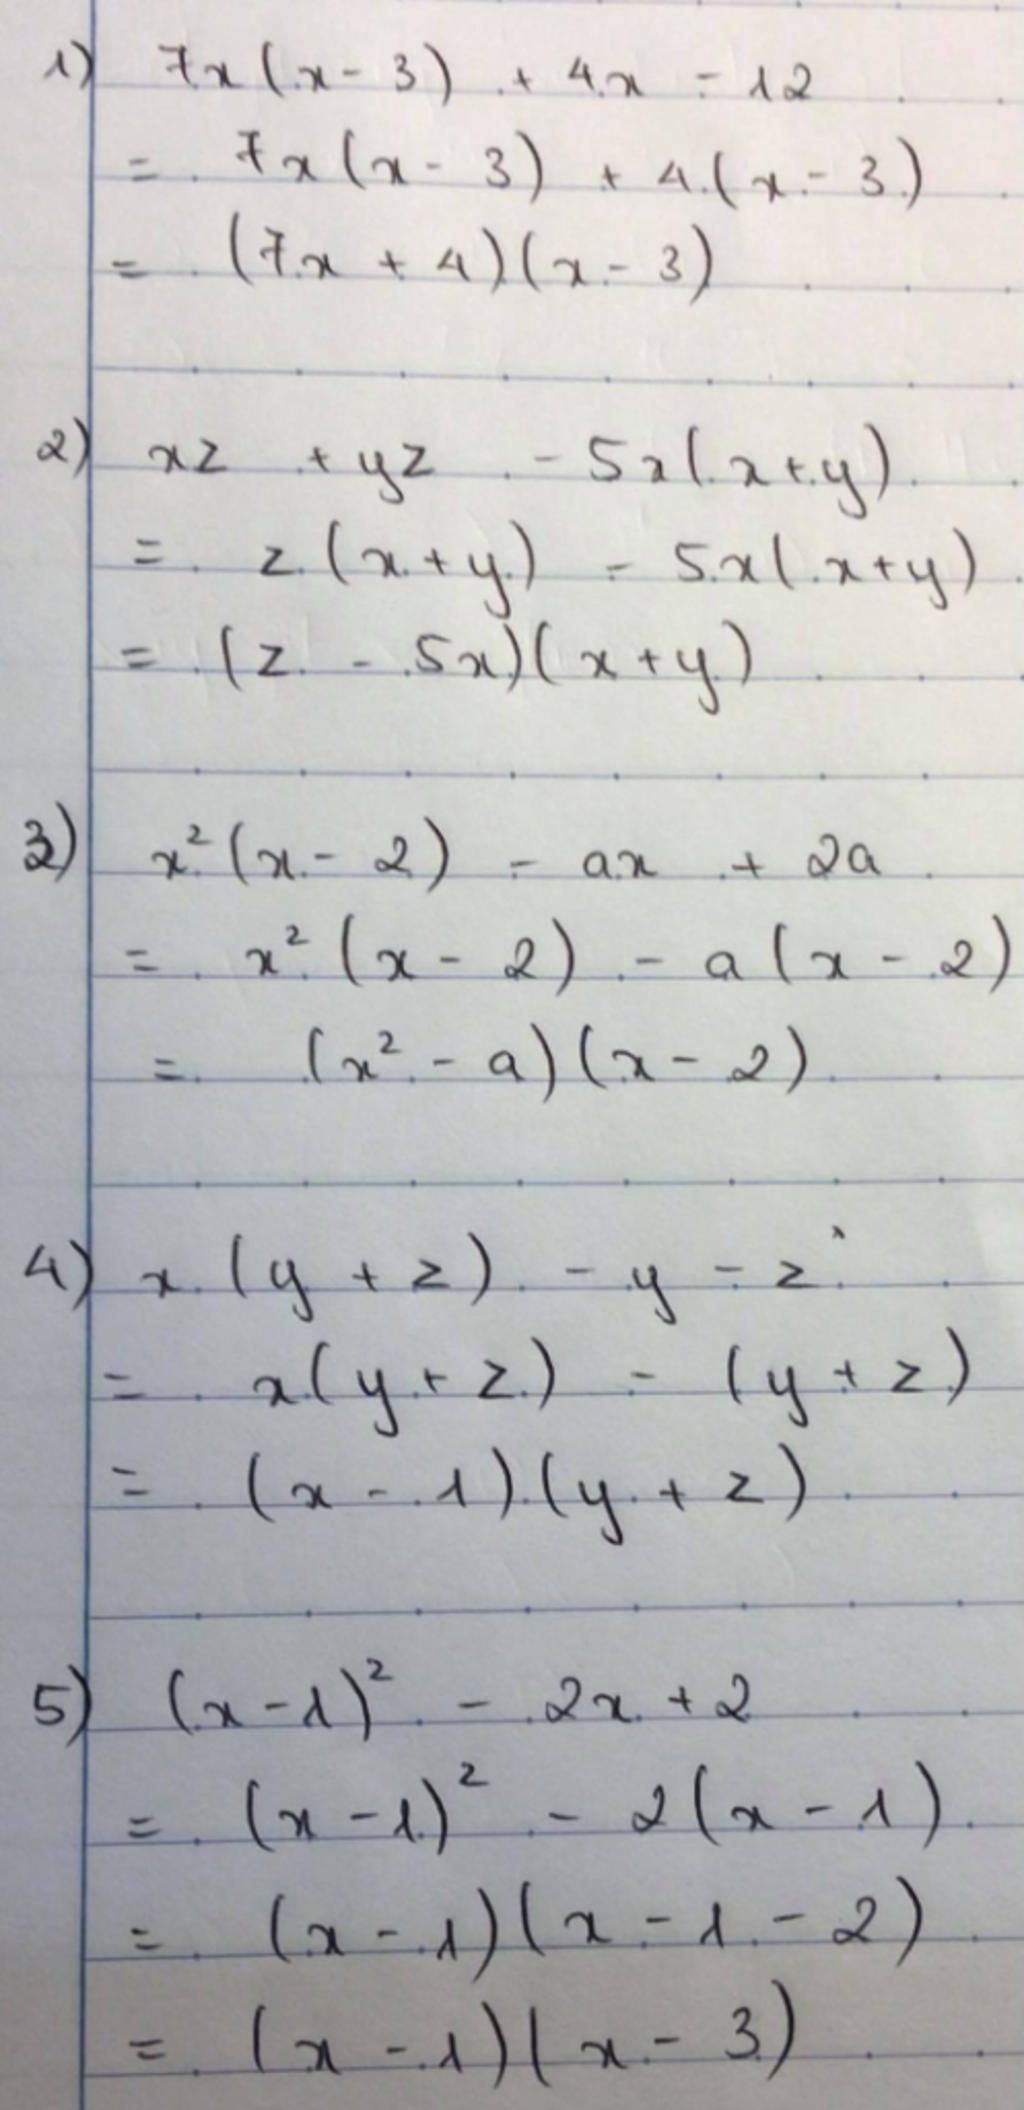 1) 7x(x-3) + 4x - 12
= 7x(x-3) + 4(x-3)
= (7x + 4)(x-3)
2) xz + yz - 5x(x+y)
= z(x+y) - 5x(x+y)
= (z - 5x)(x+y)
3) x²(x-2) - ax + 2a
= x²(x-2) - a(x-2)
= (x² - a)(x-2)
4) x(y+z) - y - z
= x(y+z) - (y+z)
= (x-1)(y+z)
5) (x-1)² - 2x + 2
= (x-1)² - 2(x-1)
= (x-1)(x-1-2)
= (x-1)(x-3)